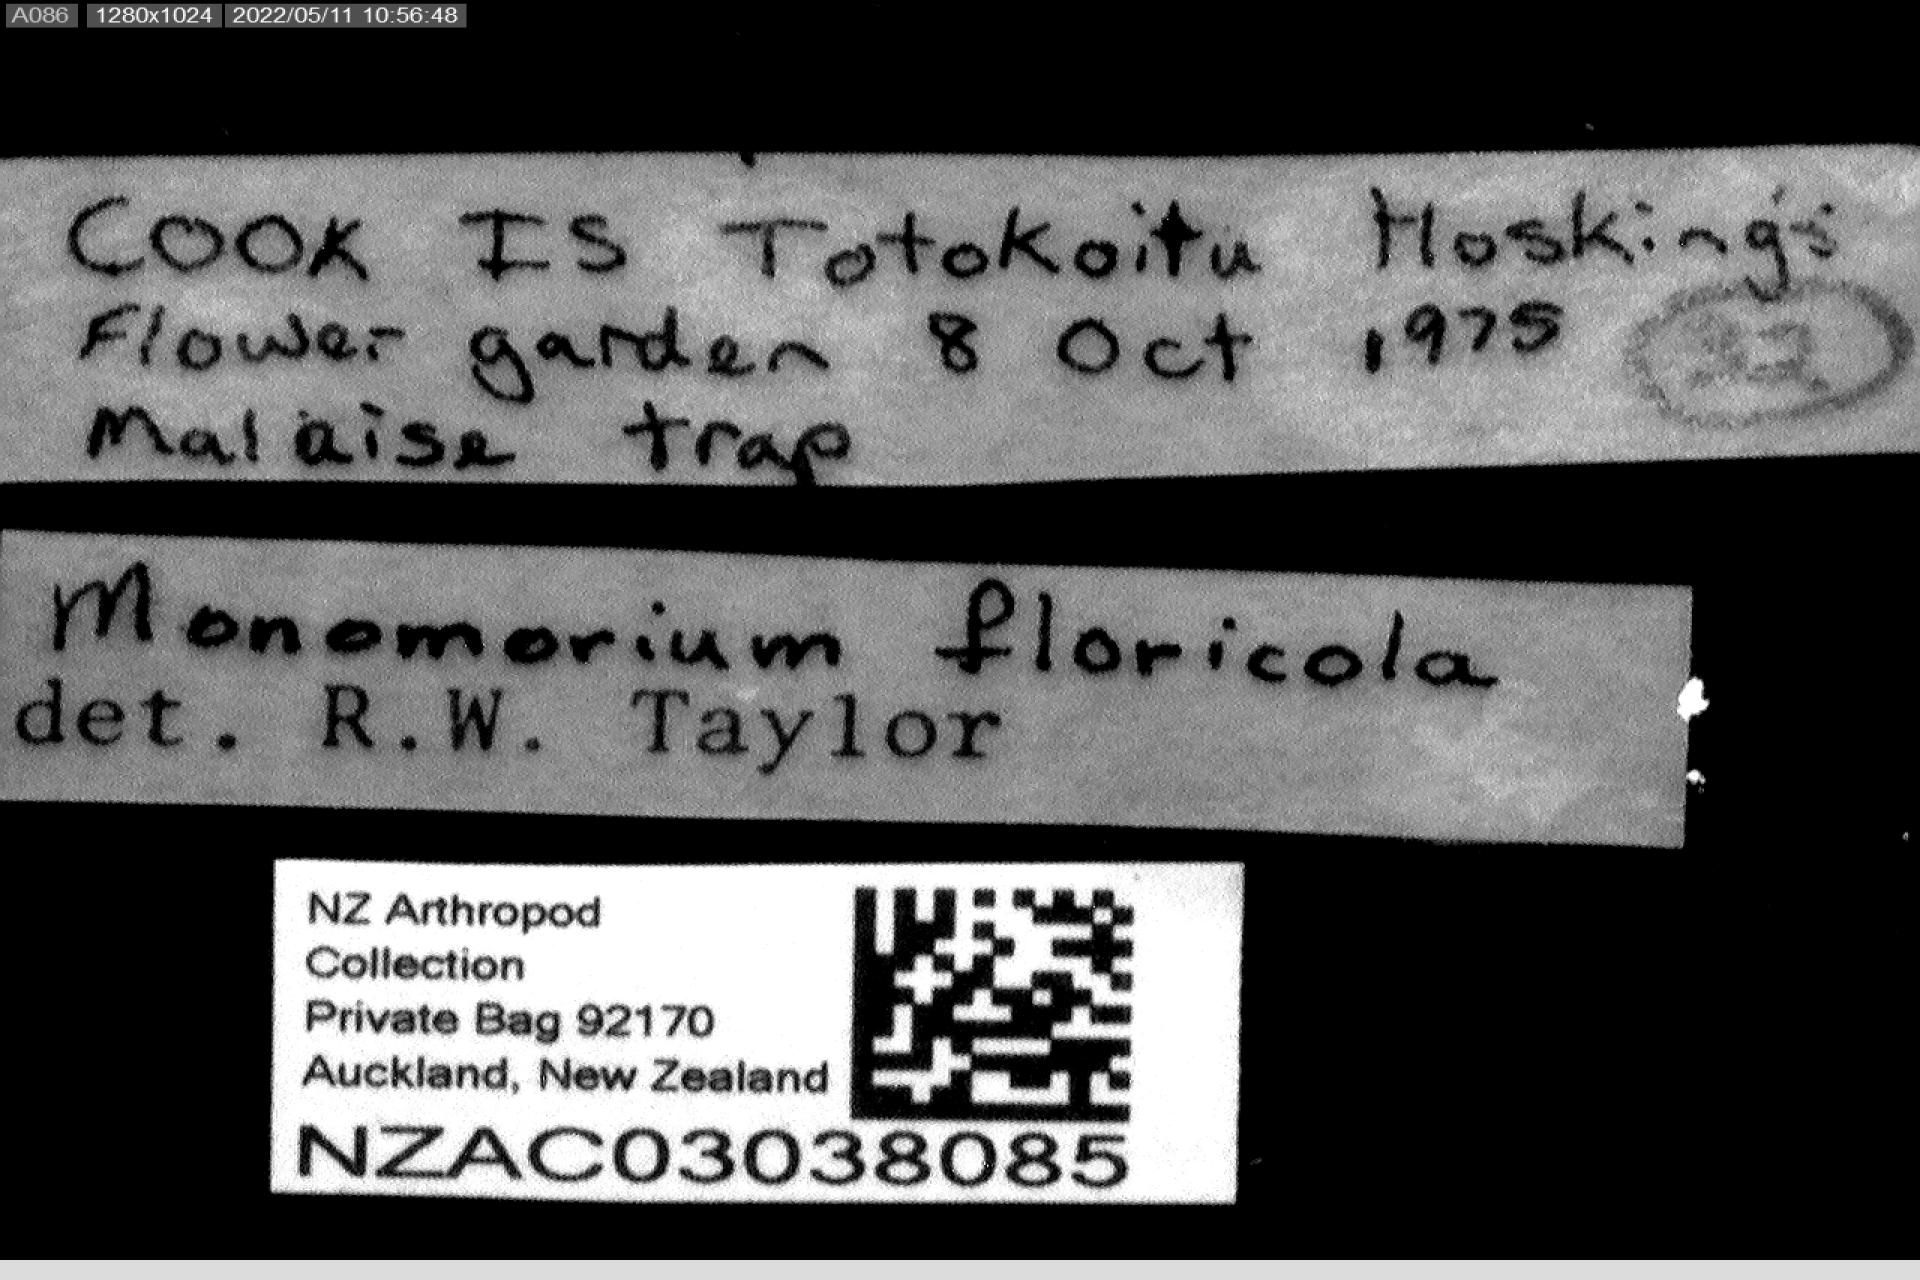 A086 1280x1024 2022/05/11 10:56:48
COOK IS Totokoitu Hosking's
Flower garden 8 Oct 1975
Malaise trap
Monomorium floricola
det. R.W. Taylor
NZ Arthropod
Collection
Private Bag 92170
Auckland, New Zealand
NZAC03038085